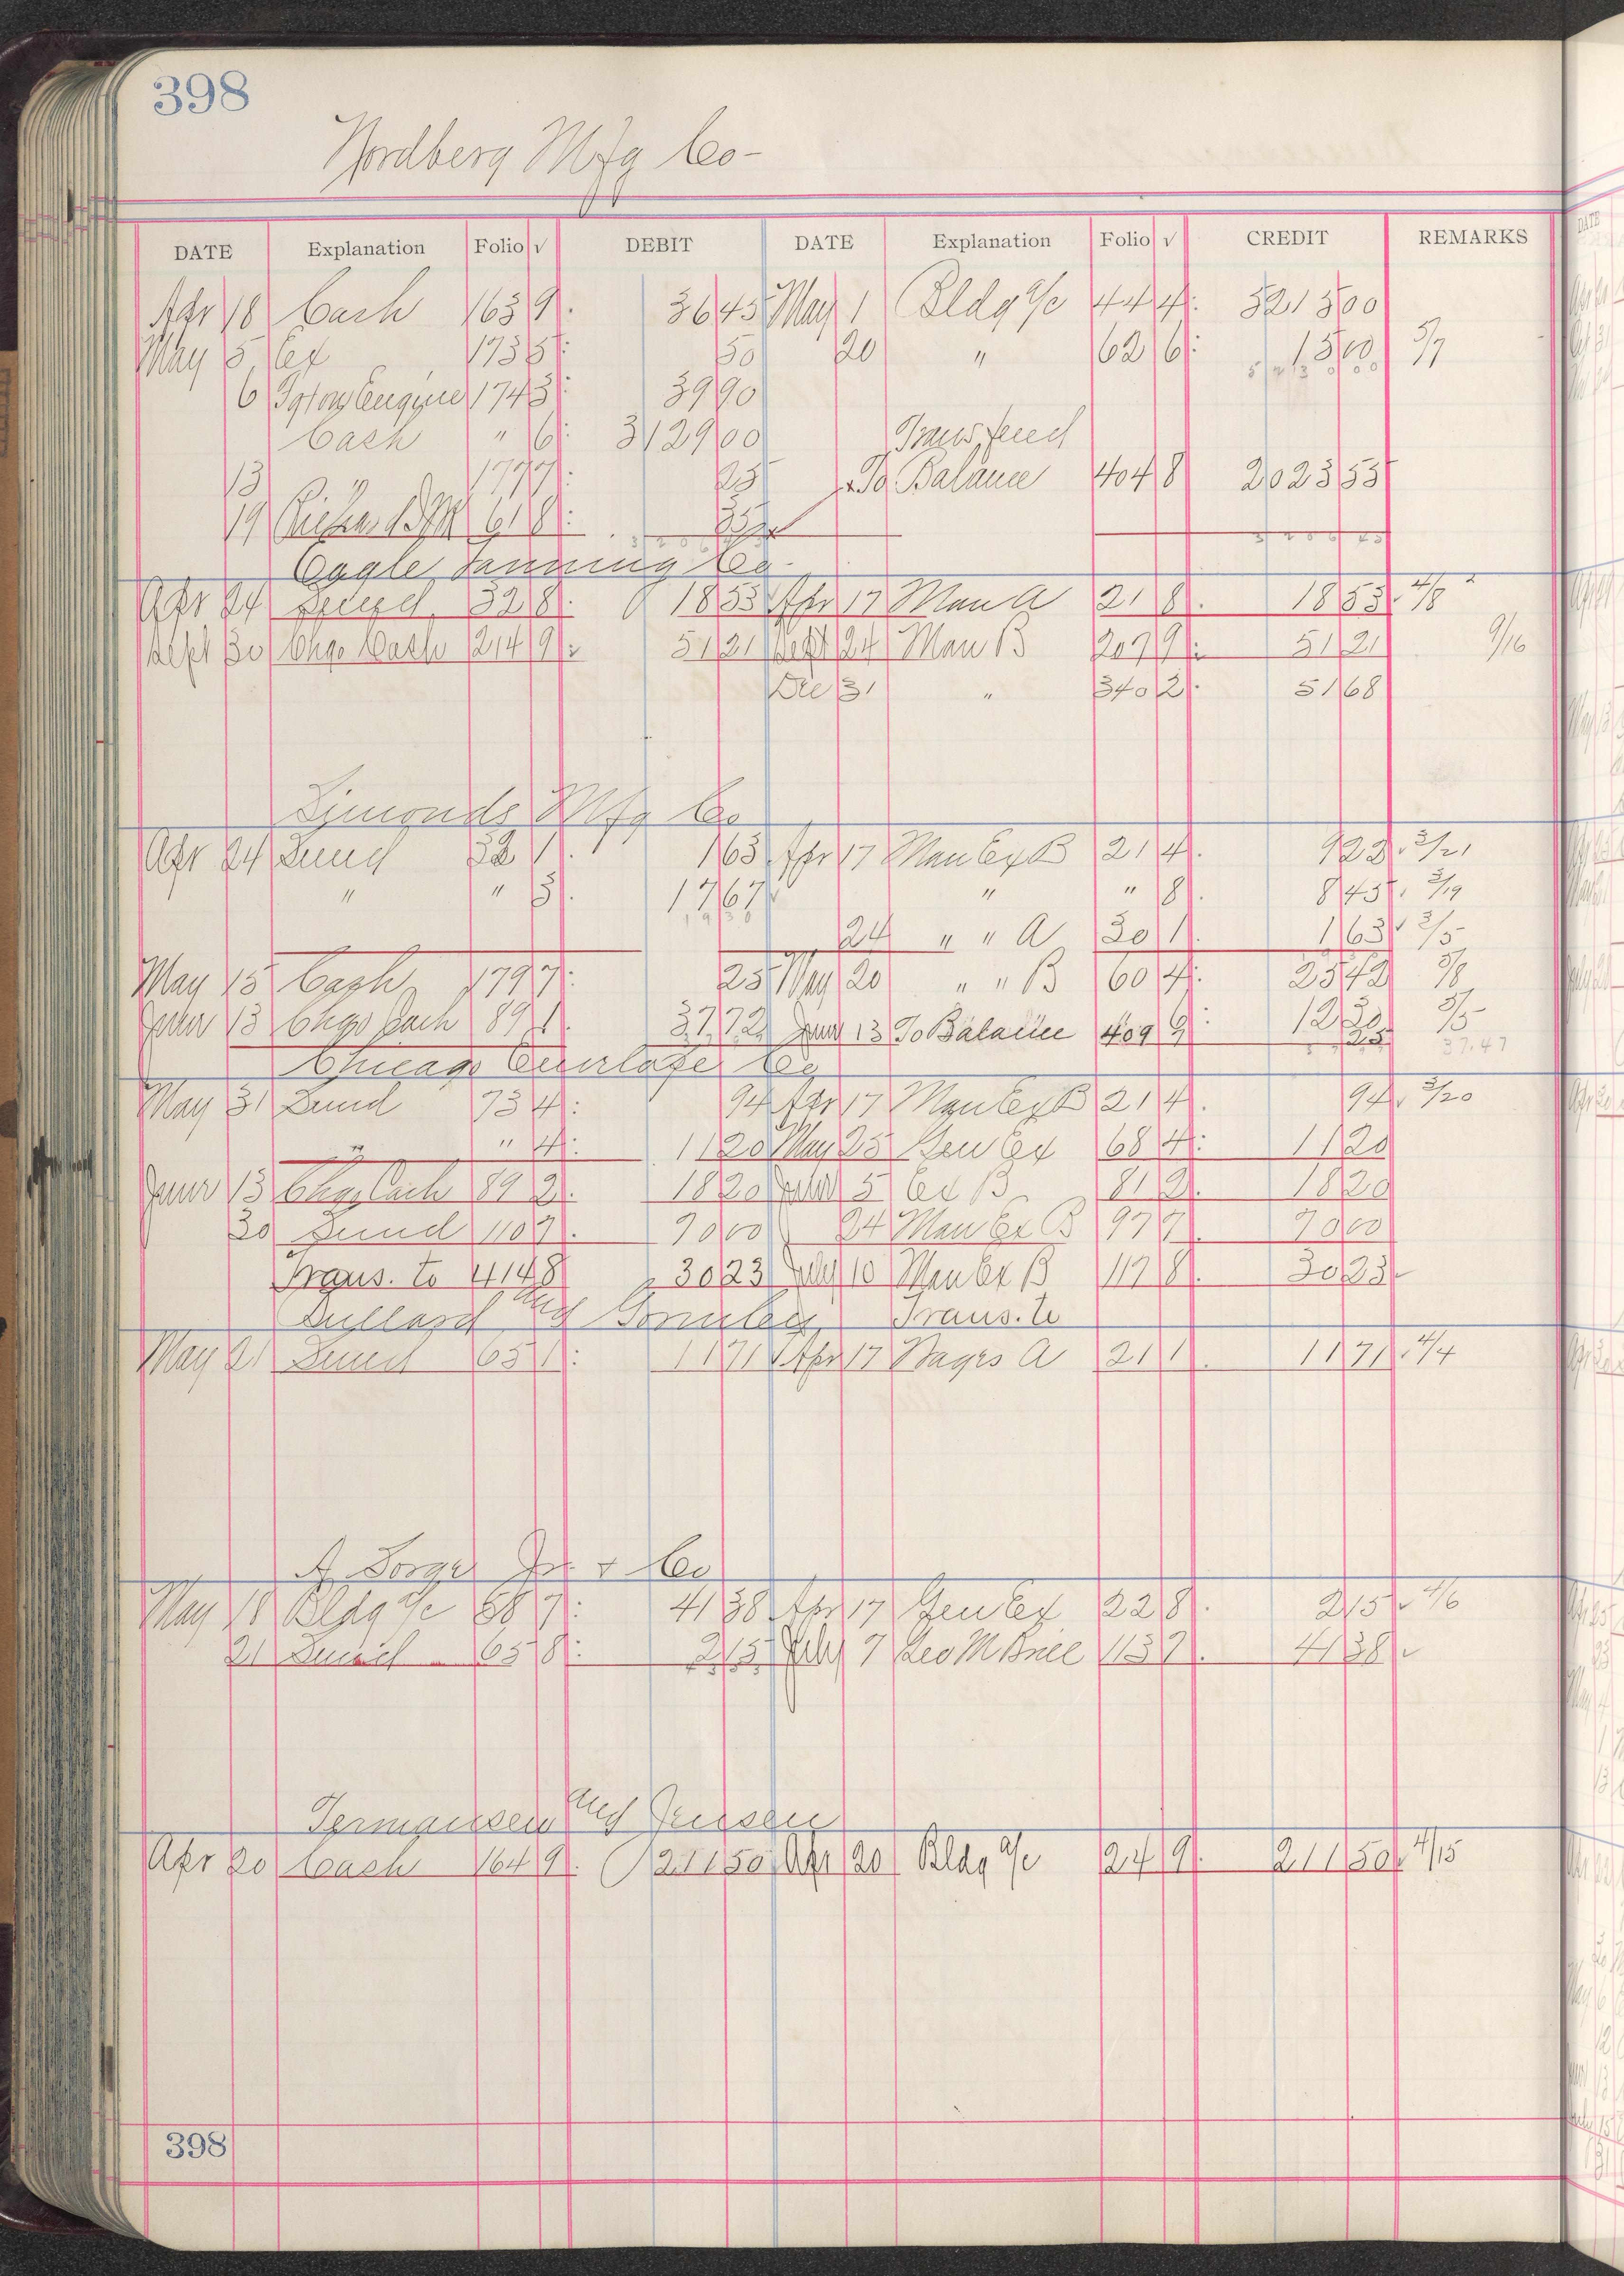 398
Nordberg Mfg Co-
DATE Explanation Folio √ DEBIT DATE Explanation Folio √ CREDIT REMARKS
Apr 18 Cash 163 9 36 45 May 1 Bldg a/c 44 4 5213 00
May 5 Ex 173 5 50 20 " 62 6 15 00 5/7
6 Engine 174 3 39 90
Cash " 6 3129 00 Transfered
13 " 177 7 25 To Balance 404 8 2023 55
19 61 8 35
Eagle Tanning Co-
Apr 24 Sund 32 8 18 53 Apr 17 Man A 21 8 18 53 4/8
Sept 30 Chgo Cash 214 9 51 21 Sept 24 Man B 207 9 51 21 9/16
Dec 31 " 340 2 51 68
Simonds Mfg Co
Apr 24 Sund 32 1 1 63 Apr 17 Man Ex B 21 4 9 22 3/21
" " 3 17 67 " " 8 8 45 3/19
19 30
24 " " A 30 1 1 63 3/5
May 15 Cash 179 7 25 May 20 " " B 60 4 25 42 5/8
June 13 Chgo Cash 89 1 37 72 June 13 To Balance 409 9 12 30 5/5
25 37.47
Chicago Co
May 31 Sund 73 4 94 Apr 17 Man Ex B 21 4 94 3/20
" " 4 11 20 May 25 Gen Ex 68 4 11 20
June 13 Chgo Cash 89 2 18 20 June 5 Ex B 81 2 18 20
30 Sund 110 7 70 00 24 Man Ex B 97 7 70 00
Trans. to 414 8 30 23 July 10 Man Ex B 117 8 30 23
and Gormley Trans. to
May 21 Sund 65 1 11 71 Apr 17 Wages A 21 1 11 71 4/4
A Sorge Jr. & Co
May 18 Bldg a/c 58 7 41 38 Apr 17 Gen Ex 22 8 2 15 4/6
21 Sund 65 8 2 15 July 7 Geo M Brill 113 7 41 38
Termansen and Jensen
Apr 20 Cash 164 9 211 50 Apr 20 Bldg a/c 24 9 211 50 4/15
398